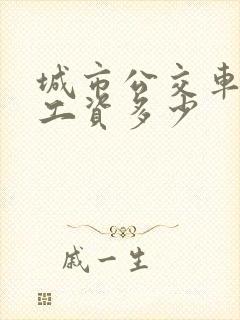 城市公交車
工資多少
戚一生